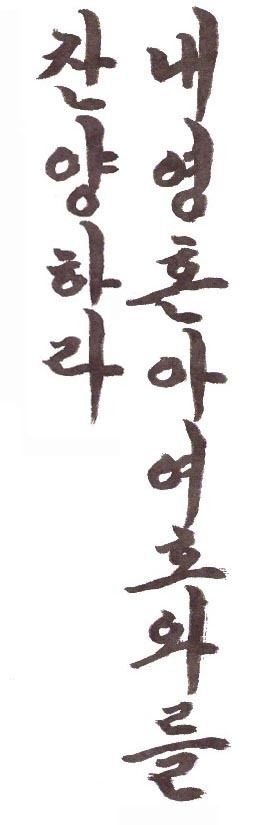 내영혼아여호와를
찬양하라